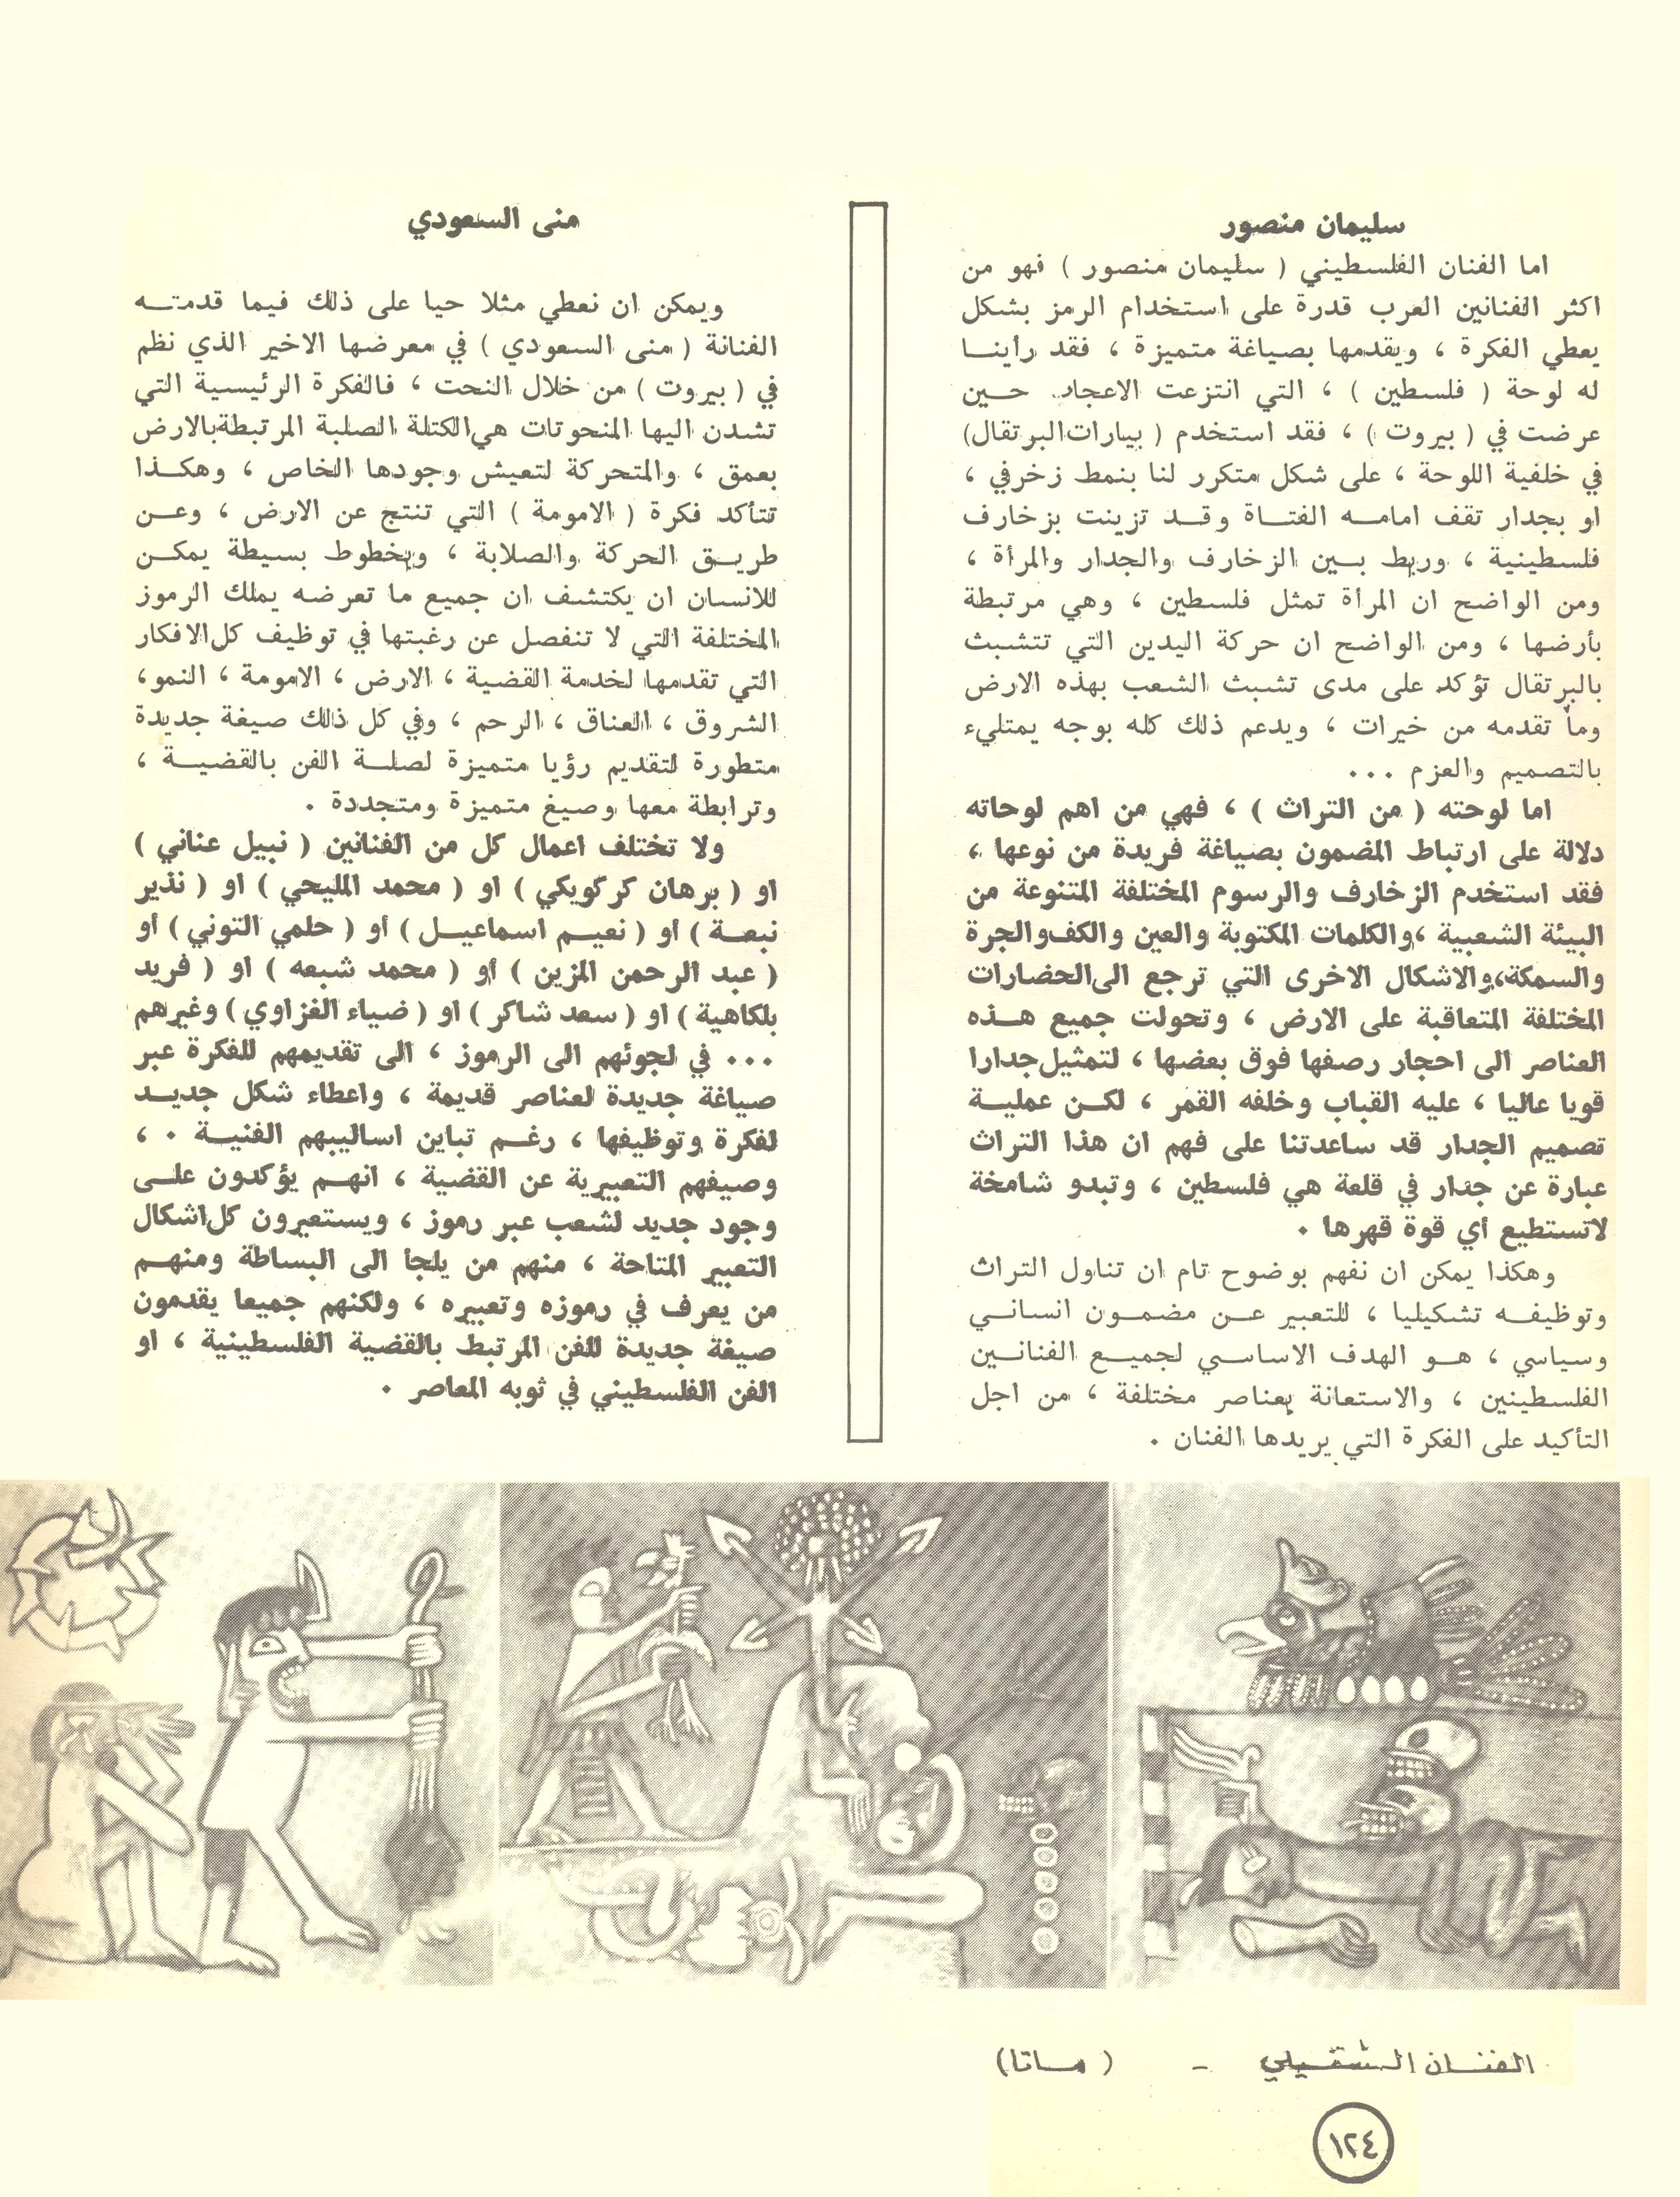 سليمان منصور
اما الفنان الفلسطيني ( سليمان منصور ) فهو من
اكثر الفنانين العرب قدرة على استخدام الرمز بشكل
يعطي الفكرة ، ويقدمها بصياغة متميزة ، فقد رأينـا
له لوحة ( فلسطين ) ، التي انتزعت الاعجاب حـين
عرضت في ( بيروت ) ، فقد استخدم ( بيارات البرتقال)
في خلفية اللوحة ، على شكل متكرر لنا بنمط زخرفي ،
او بجدار تقف امامـه الفتـاة وقـد تزينت بزخارف
فلسطينية ، وربط بـين الزخارف والجدار والمرأة ،
ومن الواضح ان المرأة تمثل فلسطين ، وهي مرتبطة
بأرضها ، ومن الواضح ان حركة اليدين التي تتشبث
بالبرتقال تؤكد على مدى تشبث الشعب بهذه الارض
وما تقدمه من خيرات ، ويدعم ذلك كله بوجه يمتليء
بالتصميم والعزم ...
اما لوحته ( من التراث ) ، فهي من اهم لوحاته
دلالة على ارتباط المضمون بصياغة فريدة من نوعها ،
فقد استخدم الزخارف والرسوم المختلفة المتنوعة من
البيئة الشعبية ،والكلمات المكتوبة والعين والكف والجرة
والسمكة،والاشكال الاخرى التي ترجع الى الحضارات
المختلفة المتعاقبة على الارض ، وتحولت جميع هـذه
العناصر الى احجار رصفها فوق بعضها ، لتمثيل جدارا
قويا عاليا ، عليه القباب وخلفه القمر ، لكـن عمليـة
تصميم الجدار قد ساعدتنا على فهم ان هذا التراث
عبارة عن جدار في قلعة هي فلسطين ، وتبدو شامخة
لاتستطيع أي قوة قهرها .
وهكذا يمكن ان نفهم بوضوح تام ان تناول التراث
وتوظيفـه تشكيليا ، للتعبير عـن مضمـون انساني
وسياسي ، هـو الهدف الاساسي لجميـع الفنانـين
الفلسطينين ، والاستعانة بعناصر مختلفة ، من اجل
التأكيد على الفكرة التي يريدها الفنان .
منى السعودي
ويمكن ان نعطي مثلا حيا على ذلك فيما قدمتـه
الفنانة ( منى السعودي ) في معرضها الاخير الذي نظم
في ( بيروت ) من خلال النحت ، فالفكرة الرئيسية التي
تشدن اليها المنحوتات هي الكتلة الصلبة المرتبطة بالارض
بعمق ، والمتحركة لتعيش وجودها الخاص ، وهكـذا
تتأكد فكرة ( الامومة ) التي تنتج عن الارض ، وعـن
طريـق الحركة والصلابة ، وبخطوط بسيطة يمكـن
للانسان ان يكتشف ان جميع ما تعرضه يملك الرموز
المختلفة التي لا تنفصل عن رغبتها في توظيف كل الافكار
التي تقدمها لخدمة القضية ، الارض ، الامومة ، النمو،
الشروق ، العناق ، الرحم ، وفي كل ذلك صيغة جديدة
متطورة لتقديم رؤيا متميزة لصلـة الفن بالقضيـة ،
وترابطة معها وصيغ متميزة ومتجددة .
ولا تختلف اعمال كل من الفنانين ( نبيل عناني )
او ( برهان كركويكي ) او ( محمد المليحي ) او ( نذير
نبعـة ) أو ( نعيـم اسماعيـل ) أو ( حلمي التوني ) أو
( عبد الرحمن المزين ) أو ( محمد شبعه ) او ( فريد
بلكاهية ) او ( سعد شاكر ) او ( ضياء العزاوي ) وغيرهم
... في لجوئهم الى الرموز ، الى تقديمهم للفكرة عبر
صياغة جديدة لعناصر قديمة ، واعطاء شكل جديـد
لفكرة وتوظيفها ، رغـم تباين اساليبهم الفنيـة . ،
وصيغهم التعبيرية عن القضية ، انهـم يؤكدون علـى
وجود جديد لشعب عبر رموز ، ويستعيرون كل اشكال
التعبير المتاحة ، منهم من يلجأ الى البساطة ومنهـم
من يعرف في رموزه وتعبيره ، ولكنهم جميعا يقدمون
صيغة جديدة للفن المرتبط بالقضية الفلسطينية ، او
الفن الفلسطيني في ثوبه المعاصر .
الفنـان الـشقـيلي - ( مـاتا)
١٢٤